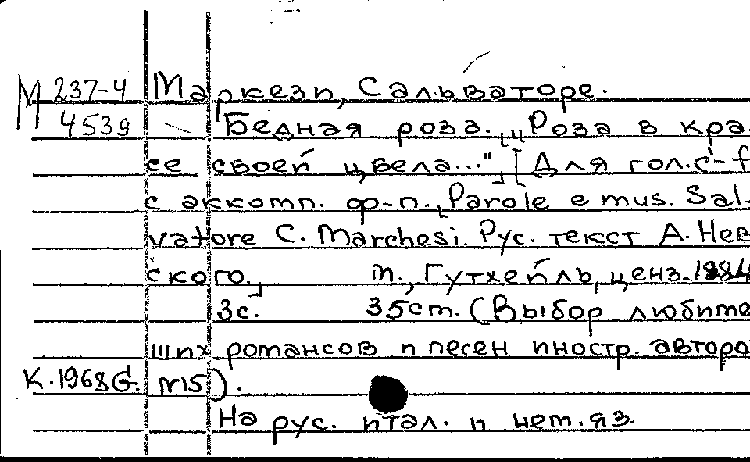 М 237-4 Маркези, Сальваторе.
4539 Бедная роза. „Роза в кра
се своей цвела...", [Для гол. c'-f
с аккомп. ф-п., Parole e mus. Sal-
vatore C. Marchesi. Рус. текст А. Нев
ского., м., Гутхейль, ценз. 1884
3с. 35ст. (Выбор любите
ших романсов и песен иностр. авторо
К.1968G. №15).
На рус. итал. и нем. яз.